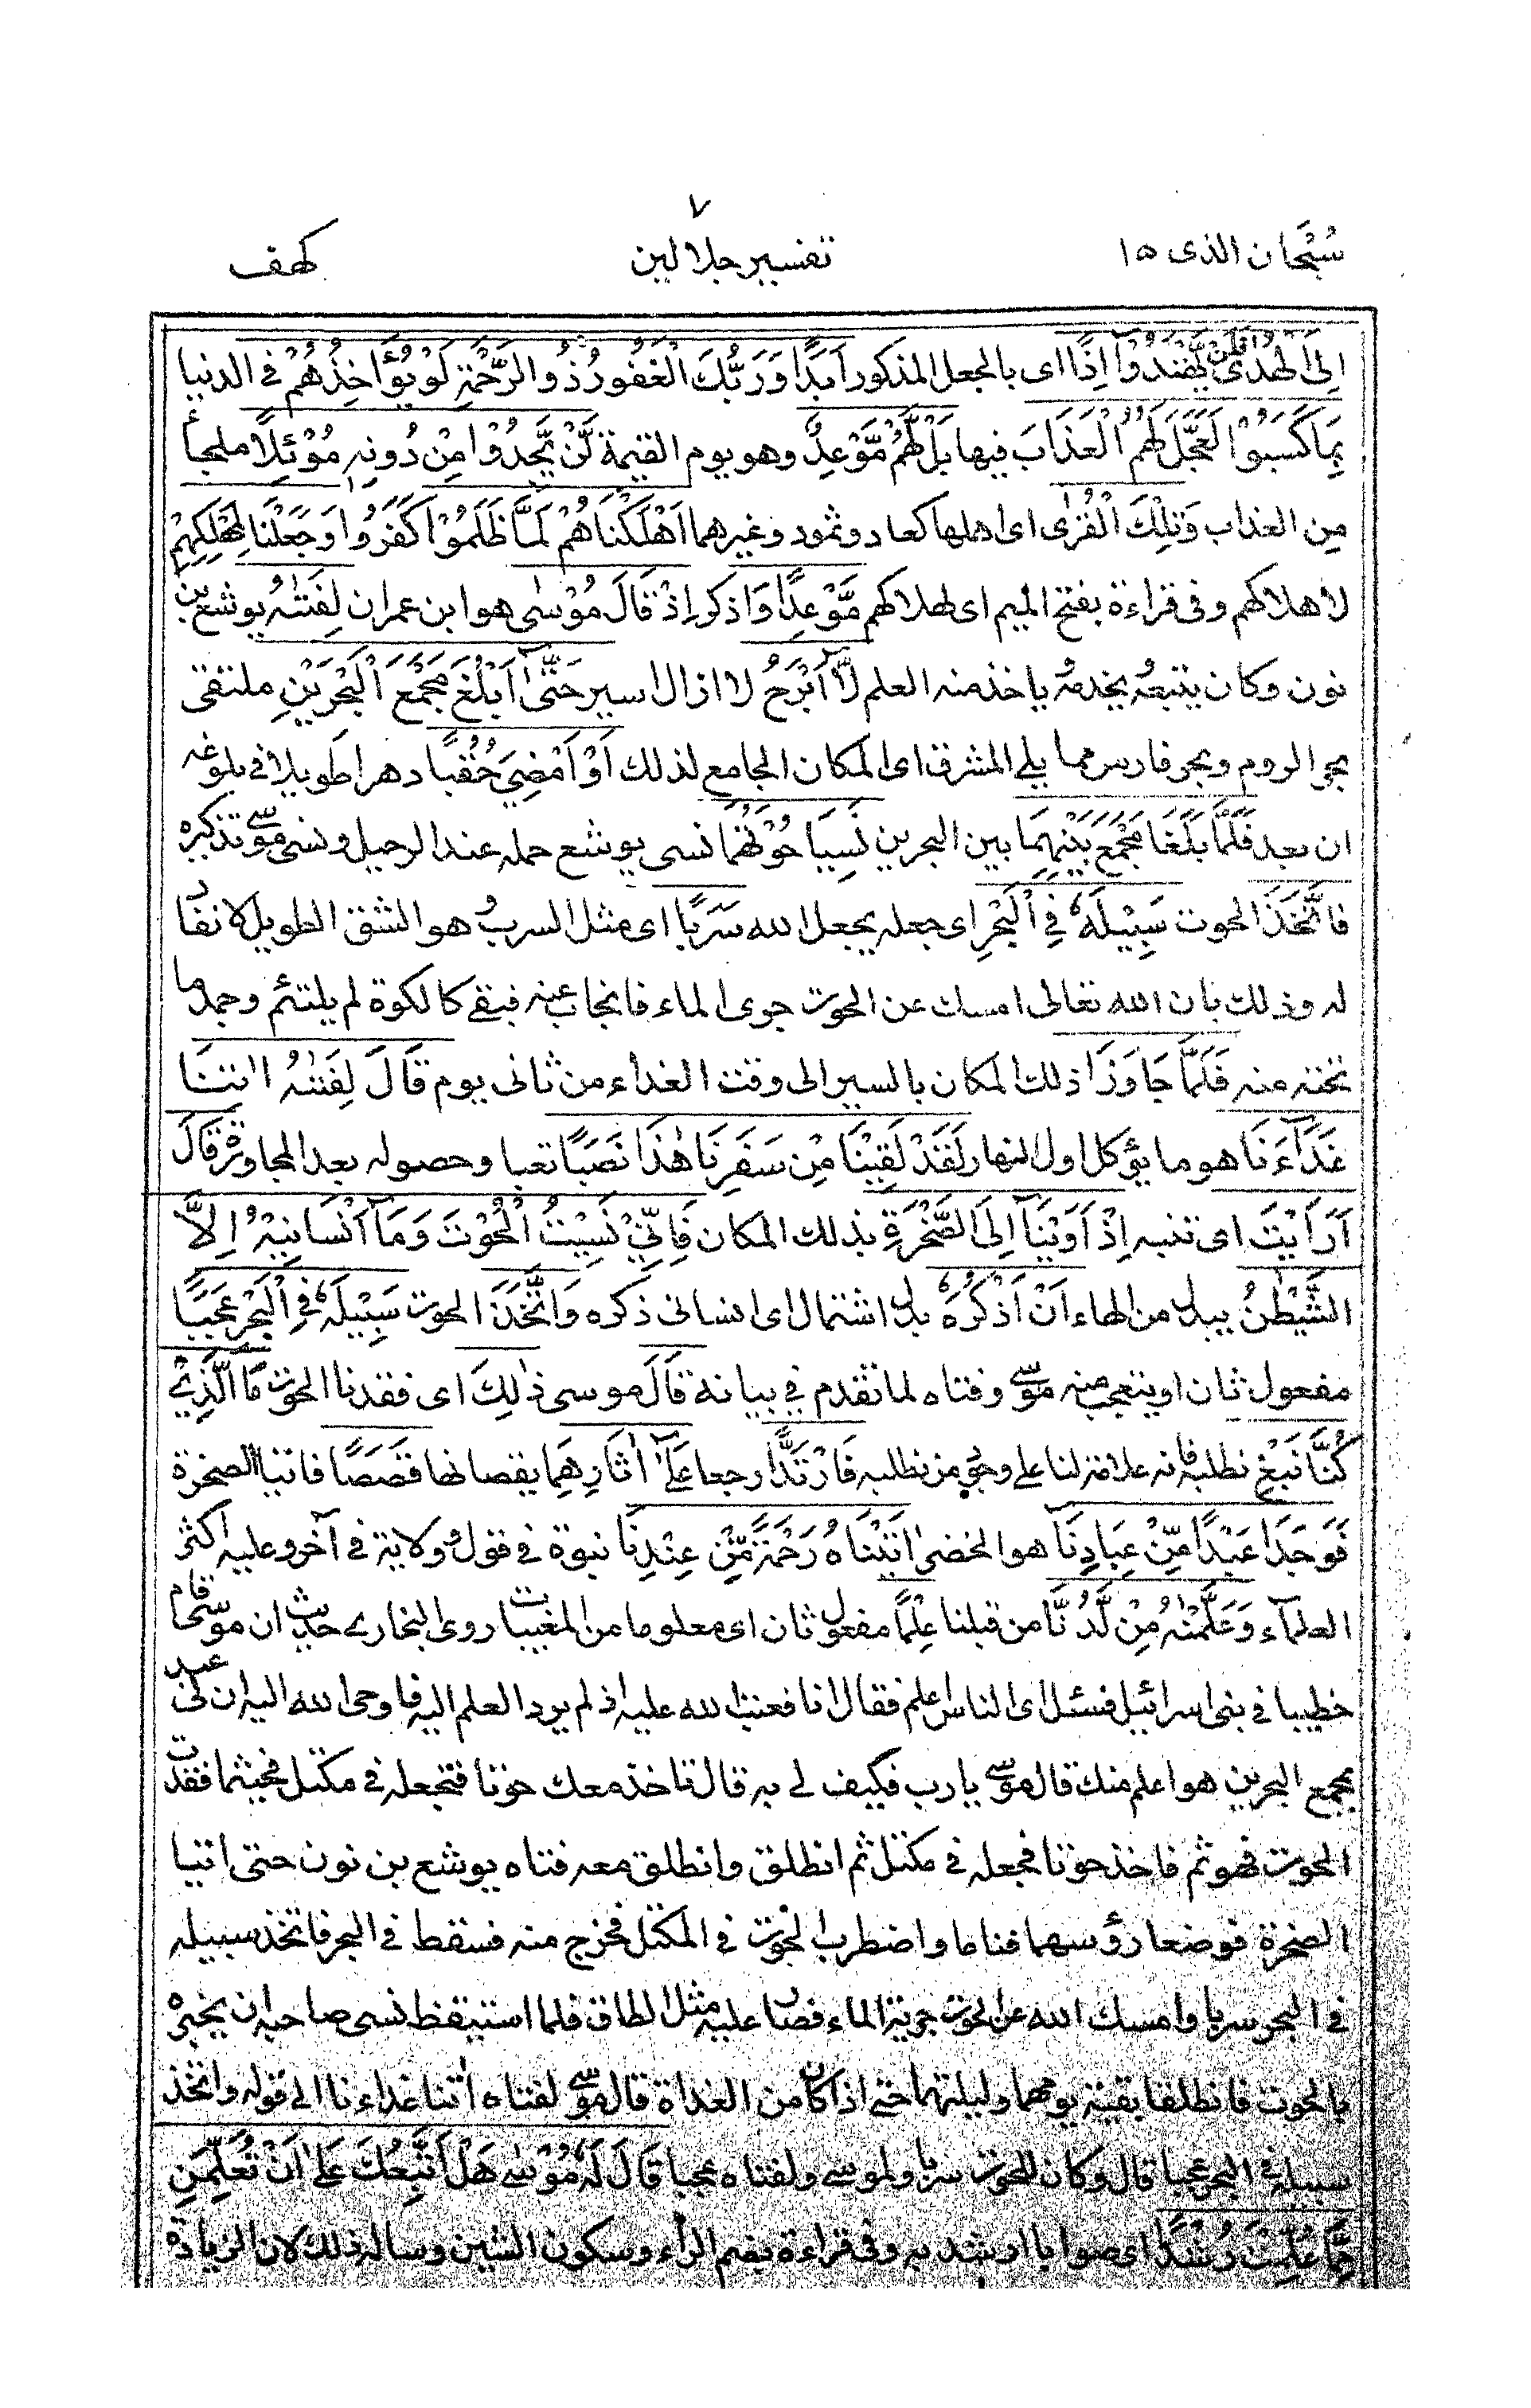 ٧
سُبْحَان الذى ١٥
تفسير جلالين
كهف
اِلَى الْهُدٰى فَلَنْ يَّهْتَدُوْٓا اِذًا اى بالجعل المذكور اَبَدًا وَرَبُّكَ الْغَفُوْرُ ذُو الرَّحْمَةِ لَوْ يُؤَاخِذُهُمْ فى الدنيا
بِمَا كَسَبُوْا لَعَجَّلَ لَهُمُ الْعَذَابَ فيها بَلْ لَّهُمْ مَّوْعِدٌ وهو يوم القيمة لَّنْ يَّجِدُوْا مِنْ دُونِهٖ مَوْئِلًا ملجأ
من العذاب وَتِلْكَ الْقُرٰى اى اهلها كعاد وثمود وغيرهما اَهْلَكْنَاهُمْ لَمَّا ظَلَمُوْا كَفَرُوا وَجَعَلْنَا لِمُهْلَكِهِمْ
لاهلاكهم وفى قراءة بفتح الميم اى لهلاكهم مَّوْعِدًا وَاذكر اِذْ قَالَ مُوْسٰى هو ابن عمران لِفَتٰىهُ يوشع بن
نون وكان يتبعه يخدمه ياخذ منه العلم لَآ اَبْرَحُ لا ازال اسير حَتّٰٓى اَبْلُغَ مَجْمَعَ الْبَحْرَيْنِ ملتقى
بحر الروم وبحر فارس مما يلے المشرق اى المكان الجامع لذلك اَوْ اَمْضِىَ حُقُبًا دهرا طويلا فى بلوغه
ان بعد فَلَمَّا بَلَغَا مَجْمَعَ بَيْنِهِمَا بين البحرين نَسِيَا حُوْتَهُمَا نسى يوشع حمله عند الرحيل ونسى موسے تذكيره
فَاتَّخَذَ الحوت سَبِيْلَهٗ فِى الْبَحْرِ اى جعله بجعل الله سَرَبًا اى مثل السرب هو الشق الطويل لا نفاد
له وذلك بان الله تعالى امسك عن الحوت جرى الماء فانجاب عنه فبقے كالكوة لم يلتئم وجمد ما
تحته منه فَلَمَّا جَاوَزَا ذلك المكان بالسير الى وقت الغداء من ثانى يوم قَالَ لِفَتٰىهُ اٰتِنَا
غَدَآءَنَا هو ما يؤكل اول النهار لَقَدْ لَقِيْنَا مِنْ سَفَرِنَا هٰذَا نَصَبًا تعبا وحصوله بعد المجاوزة قَالَ
اَرَاَيْتَ اى تنبه اِذْ اَوَيْنَآ اِلَى الصَّخْرَةِ بذلك المكان فَاِنِّىْ نَسِيْتُ الْحُوْتَ وَمَآ اَنْسَانِيْهُ اِلَّا
الشَّيْطٰنُ يبدل من الهاء اَنْ اَذْكُرَهٗ بدل اشتمال اى انسانى ذكره وَاتَّخَذَ الحوت سَبِيْلَهٗ فِى الْبَحْرِ عَجَبًا
مفعول ثان او يتعجب منه موسے وفتاه لما تقدم فى بيانه قَالَ موسى ذٰلِكَ اى فقدنا الحوت مَا الَّذِىْ
كُنَّا نَبْغِ نطلبه فانه علامة لنا على وجود من نطلبه فَارْتَدَّا رجعا عَلٰٓى اٰثَارِهِمَا يقصانها قَصَصًا فاتيا الصخرة
فَوَجَدَا عَبْدًا مِّنْ عِبَادِنَآ هو الخضر اٰتَيْنَاهُ رَحْمَةً مِّنْ عِنْدِنَا نبوة فى قول وولاية فى آخر وعليه اكثر
العلمآء وَعَلَّمْنٰهُ مِنْ لَّدُنَّا من قبلنا عِلْمًا مفعول ثان اى معلوما من المغيبات روى البخارے حديث ان موسى قام
خطيبا فى بنى اسرائيل فسئل اى الناس اعلم فقال انا فعتب الله عليه اذ لم يرد العلم اليه فاوحى الله اليه ان لى عبدا
بمجمع البحرين هو اعلم منك قال موسے يا رب فكيف لے به قال تاخذ معك حوتا فتجعله فى مكتل فحيثما فقدت
الحوت فهو ثم فاخذ حوتا فجعله فى مكتل ثم انطلق وانطلق معه فتاه يوشع بن نون حتى اتيا
الصخرة فوضعا رؤسهما فناما واضطرب الحوت فى المكتل فخرج منه فسقط فى البحر فاتخذ سبيله
فى البحر سربا وامسك الله عن الحوت جرية الماء فصار عليه مثل الطاق فلما استيقظ نسى صاحبه ان يخبره
بالحوت فانطلقا بقية يومهما وليلتهما حتے اذا كان من الغداة قال موسے لفتاه اٰتنا غداءنا الى قوله واتخذ
سبيله فى البحر عجبا قال وكان للحوت سربا ولموسے ولفتاه عجبا قَالَ لَهٗ مُوْسٰى هَلْ اَتَّبِعُكَ عَلٰٓى اَنْ تُعَلِّمَنِ
مِمَّا عُلِّمْتَ رُشْدًا اى صوابا ارشد به وفى قراءة بضم الراء وسكون الشين وساله ذلك لان الزيادة